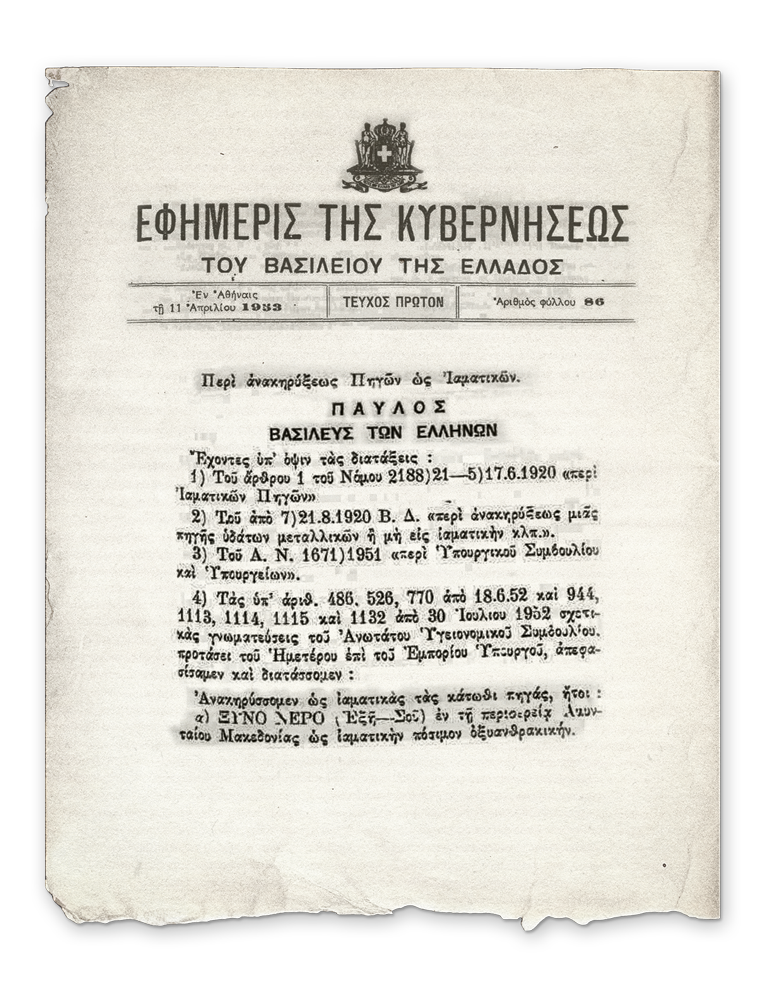 ΕΦΗΜΕΡΙΣ ΤΗΣ ΚΥΒΕΡΝΗΣΕΩΣ
ΤΟΥ ΒΑΣΙΛΕΙΟΥ ΤΗΣ ΕΛΛΑΔΟΣ
Ἐν Ἀθήναις
τῇ 11 Ἀπριλίου 1953
ΤΕΥΧΟΣ ΠΡΩΤΟΝ
Ἀριθμὸς φύλλου 86
Περὶ ἀνακηρύξεως Πηγῶν ὡς Ἰαματικῶν.
ΠΑΥΛΟΣ
ΒΑΣΙΛΕΥΣ ΤΩΝ ΕΛΛΗΝΩΝ
Ἔχοντες ὑπ' ὄψιν τὰς διατάξεις :
1) Τοῦ ἄρθρου 1 τοῦ Νόμου 2188)21—5)17.6.1920 «περὶ
Ἰαματικῶν Πηγῶν»
2) Τοῦ ἀπὸ 7)21.8.1920 Β. Δ. «περὶ ἀνακηρύξεως μιᾶς
πηγῆς ὑδάτων μεταλλικῶν ἢ μὴ εἰς ἰαματικὴν κλπ.».
3) Τοῦ Α. Ν. 1671)1951 «περὶ Ὑπουργικοῦ Συμβουλίου
καὶ Ὑπουργείων».
4) Τὰς ὑπ' ἀριθ. 486, 526, 770 ἀπὸ 18.6.52 καὶ 944,
1113, 1114, 1115 καὶ 1132 ἀπὸ 30 Ἰουλίου 1952 σχετι-
κὰς γνωματεύσεις τοῦ Ἀνωτάτου Ὑγειονομικοῦ Συμβουλίου.
προτάσει τοῦ Ἡμετέρου ἐπὶ τοῦ Ἐμπορίου Ὑπουργοῦ, ἀπεφα-
σίσαμεν καὶ διατάσσομεν :
Ἀνακηρύσσομεν ὡς ἰαματικὰς τὰς κάτωθι πηγάς, ἤτοι :
α) ΞΥΝΟ ΝΕΡΟ (Ἐξῆ—Σοῦ) ἐν τῇ περιφερείᾳ Ἀμυν-
ταίου Μακεδονίας ὡς ἰαματικὴν πόσιμον ὀξυανθρακικήν.